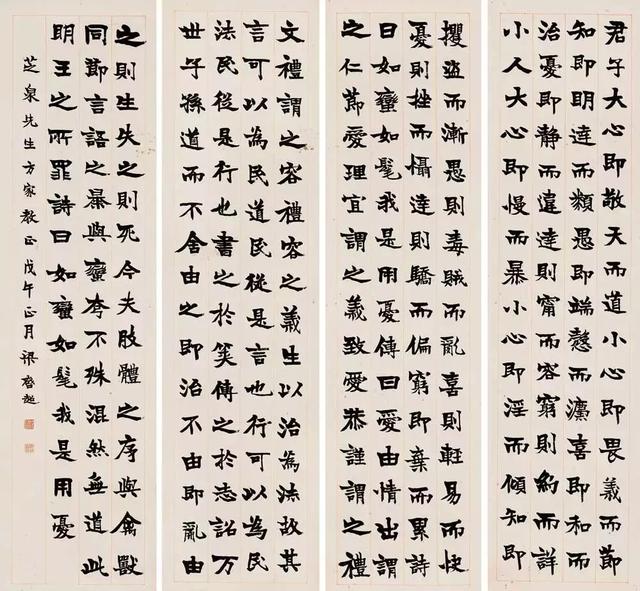 君子大心即敬天而道小心即畏義而節
知即明達而類愚即端愨而灋喜即和而
治憂即靜而違達則甯而容窮則約而詳
小人大心即慢而暴小心即淫而傾知即
攫盜而漸愚則毒賊而亂喜則輕易而快
憂則挫而懾達則驕而偏窮即棄而累詩
曰如蠻如髦我是用憂傳曰愛由情出謂
之仁節愛理宜謂之義致愛恭謹謂之禮
文禮謂之容禮容之義生以治為法故其
言可以為民道民從是言也行可以為民
法民從是行也書之於筞傳之於志詔万
世子孫道而不舍由之即治不由即亂由
之則生失之則死今夫肢體之序與禽獸
同節言語之暴與蠻夷不殊混然無道此
明王之所罪詩曰如蠻如髦我是用憂
芝泉先生方家教正戊午正月梁啟超